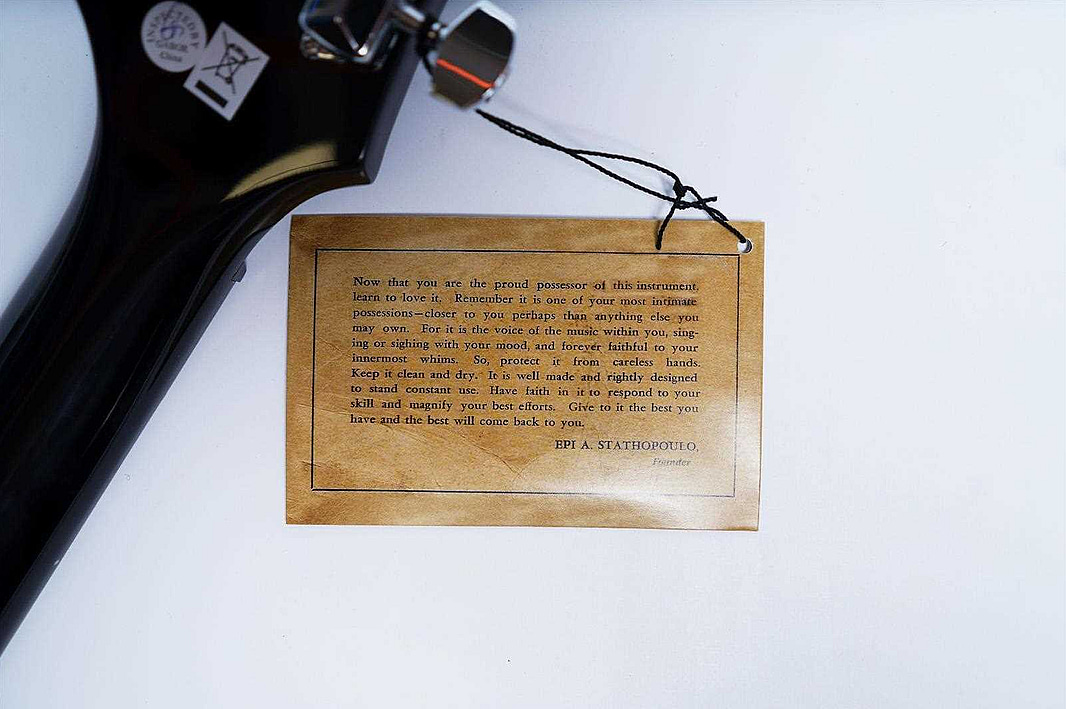 INSPECTED BY
GABOR
China
Now that you are the proud possessor of this instrument,
learn to love it. Remember it is one of your most intimate
possessions—closer to you perhaps than anything else you
may own. For it is the voice of the music within you, sing-
ing or sighing with your mood, and forever faithful to your
innermost whims. So, protect it from careless hands.
Keep it clean and dry. It is well made and rightly designed
to stand constant use. Have faith in it to respond to your
skill and magnify your best efforts. Give to it the best you
have and the best will come back to you.
EPI A. STATHOPOULO,
Founder